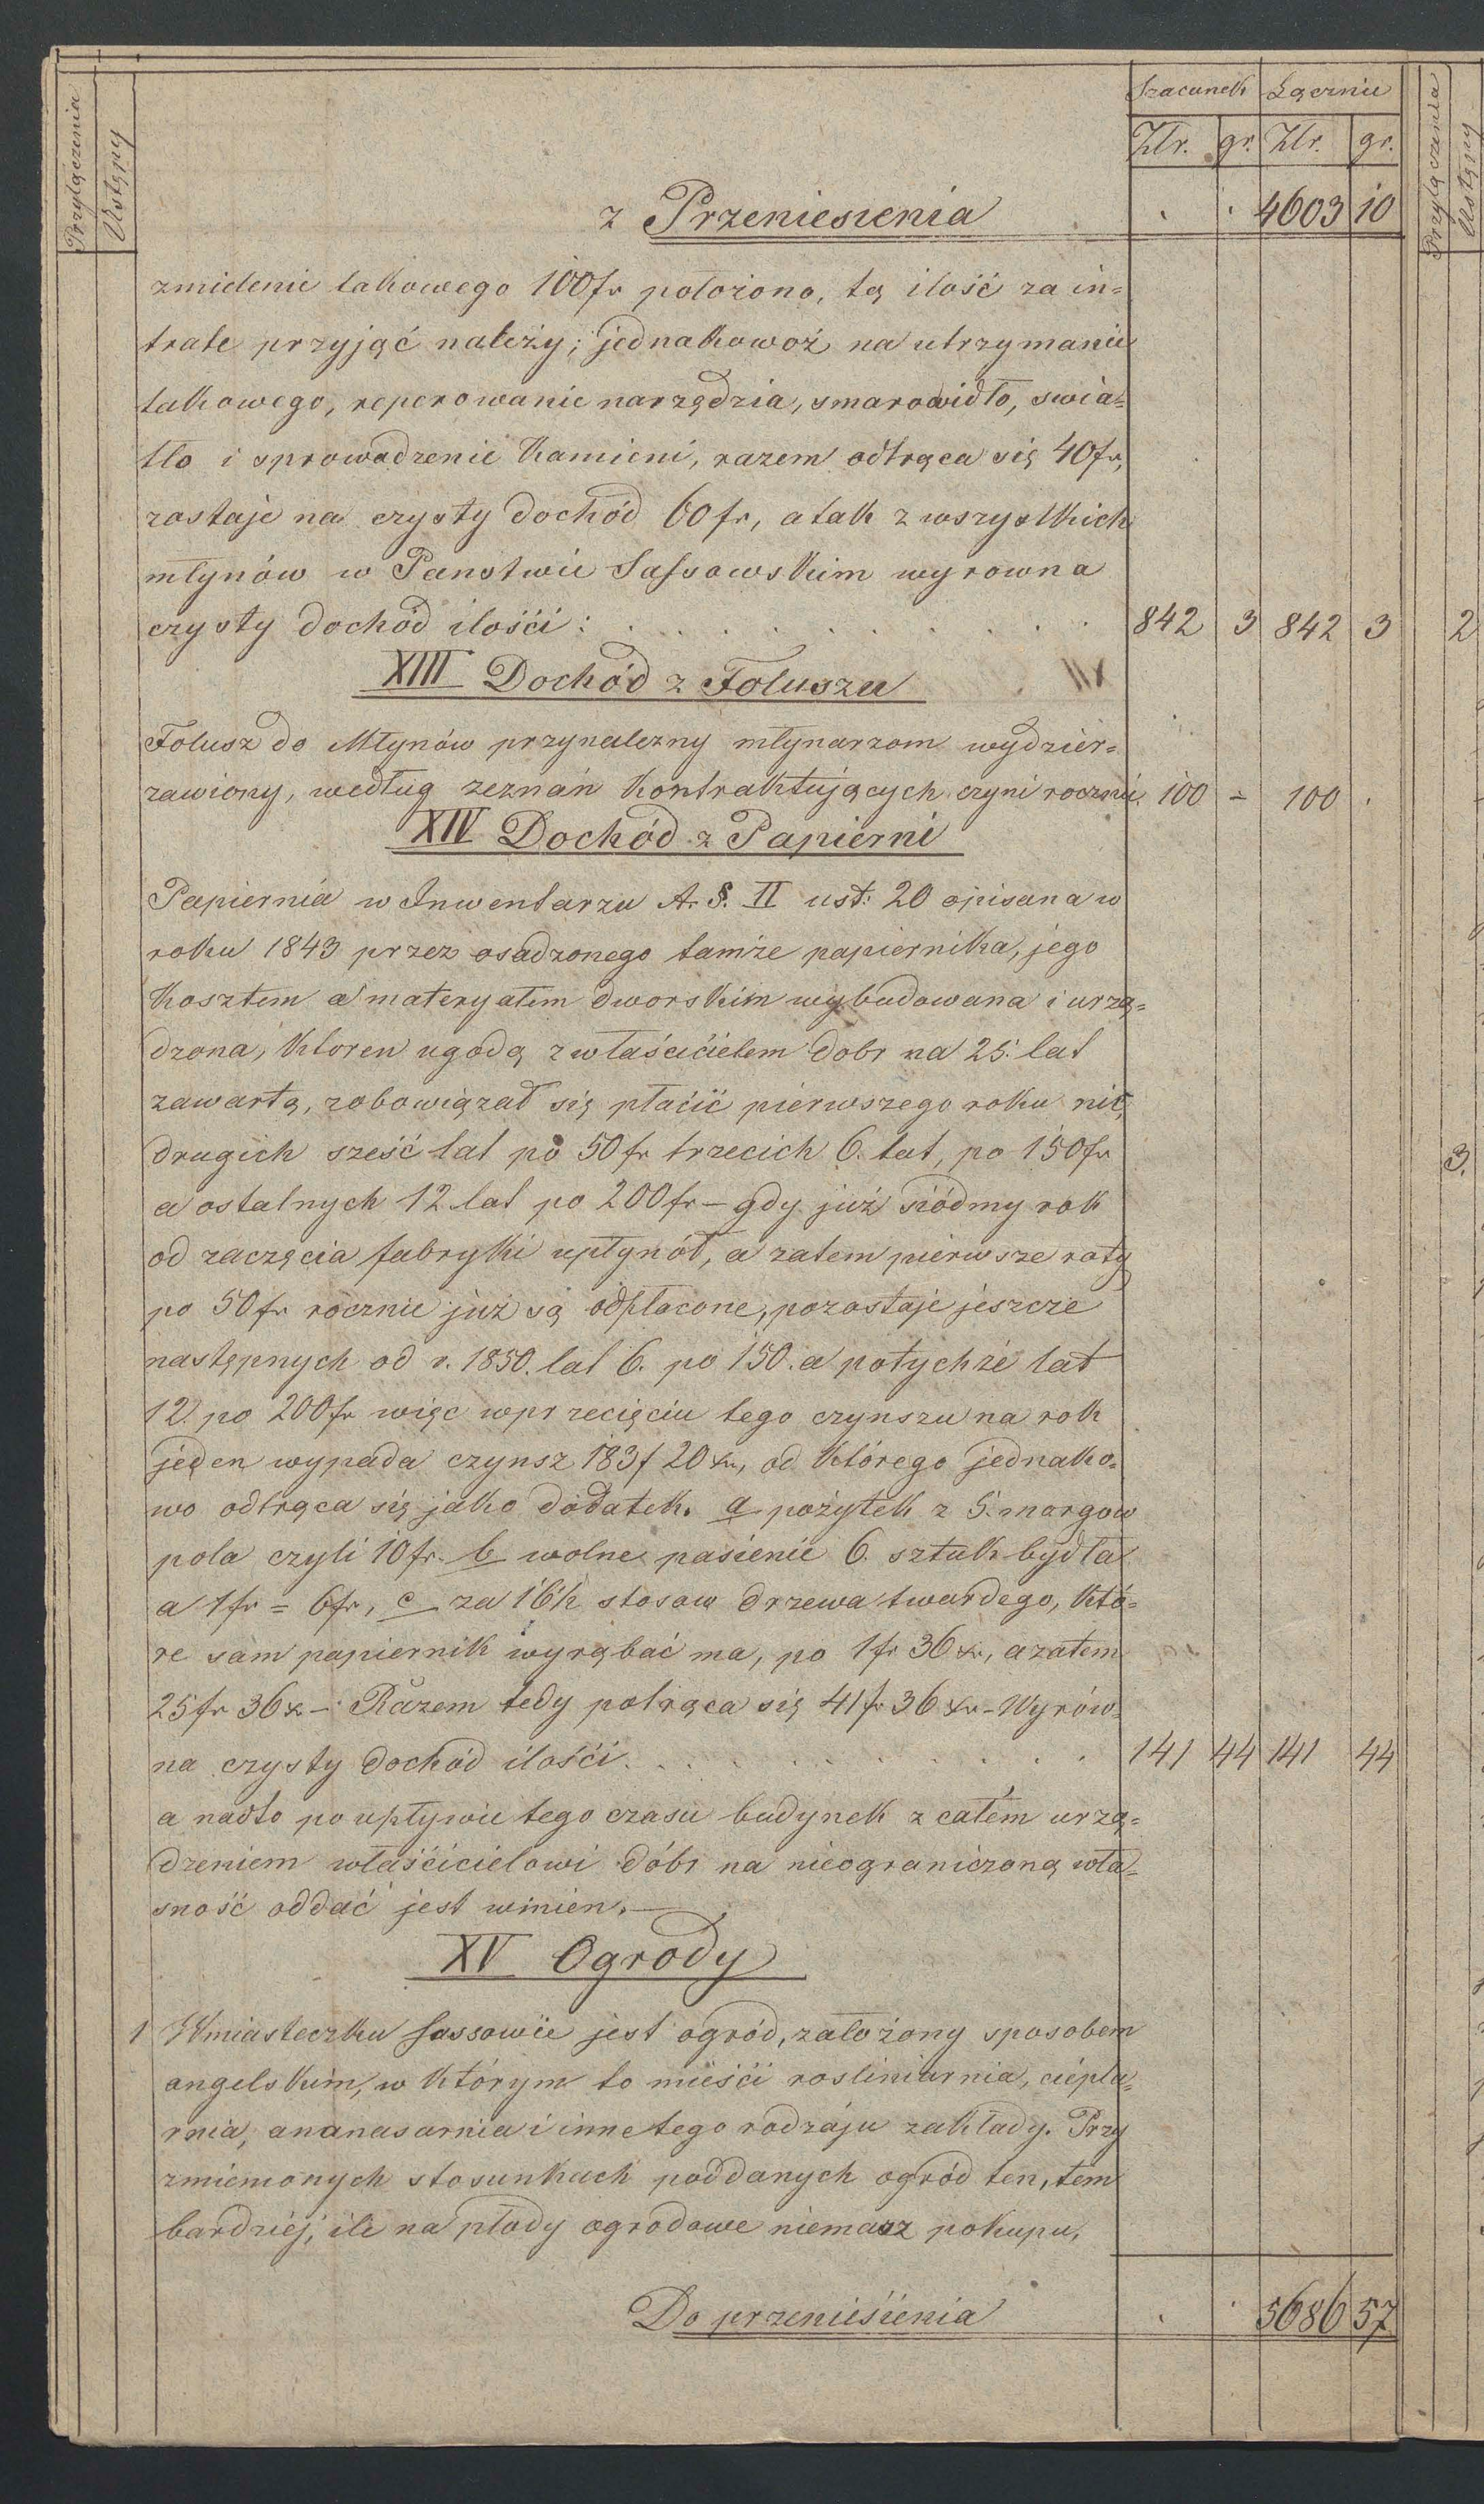 Przyłączenia Ustępy Szacunek Łącznie
Złr. gr. Złr. gr.
z Przeniesienia . . 4603 10
zmielenie takowego 100 fr położono, tą ilość za in=
tratę przyjąć należy; jednakowoż na utrzymanie
takowego, reperowanie narzędzia, smarowidło, swia=
tło i sprowadzenie Kamieni, razem odtrąca się 40 fr,
zostaje na czysty dochód 60 fr, a tak z wszystkich
młynów w Panstwie Sassowskim wyrowna
czysty dochód ilości: . . . . . . . . . . 842 3 842 3
XIII Dochód z Folusza
Folusz do Młynów przynalezny młynarzom wydzier=
zawiony, według zeznań Kontraktujących czyni rocznie. 100 = 100 .
XIV Dochód z Papierni
Papiernia w Inwentarzu A. §. II ust: 20 opisana w
roku 1843 przez osadzonego tamże papiernika, jego
Kosztem a materyałem dworskim wybudowana i urzą=
dzona, Ktoren ugodą z właścicielem dobr na 25. lat
zawartą, zobowiązał się płacić pierwszego roku nic,
drugich sześć lat po 50 fr trzecich 6. lat, po 150 fr
a ostatnych 12 lat po 200 fr – gdy już siódmy rok
od zaczęcia fabryki upłynół, a zatem pierwsze raty
po 50 fr rocznie już są odpłacone, pozostaje jeszcze
następnych od r. 1850. lat 6. po 150. a potychże lat
12. po 200 fr więc w przecięciu tego czynszu na rok
jeden wypada czynsz 183 f 20 xr, od Którego jednako=
wo odtrąca się jako dodatek. a pożytek z 5. morgow
pola czyli 10 fr. b wolne pasienie 6. sztuk bydła
a 1 fr = 6 fr, c za 16 h stosow drzewa twardego, Któ=
re sam papiernik wyrąbać ma, po 1 fr 36 xr, a zatem
25 fr 36 x – Razem tedy potrąca się 41 fr 36 xr – Wyrów=
na czysty dochód ilości. . . . . . . . . . 141 44 141 44
a nadto po upływie tego czasu budynek z całem urzą=
dzeniem właścicielowi dóbr na nieograniczoną wła=
sność oddać jest winien. –
XV Ogrody
1 W miasteczku Sassowie jest ogród, założony sposobem
angelskim, w którym to mieści rosliniarnia, ciepla=
rnia, ananasarnia i inne tego rodzáju zakłady. Przy
zmienionych stosunkach poddanych ogród ten, tem
bardziej, ile na płody ogrodowe niemasz pokupu,
Do przeniesienia . . 5686 57